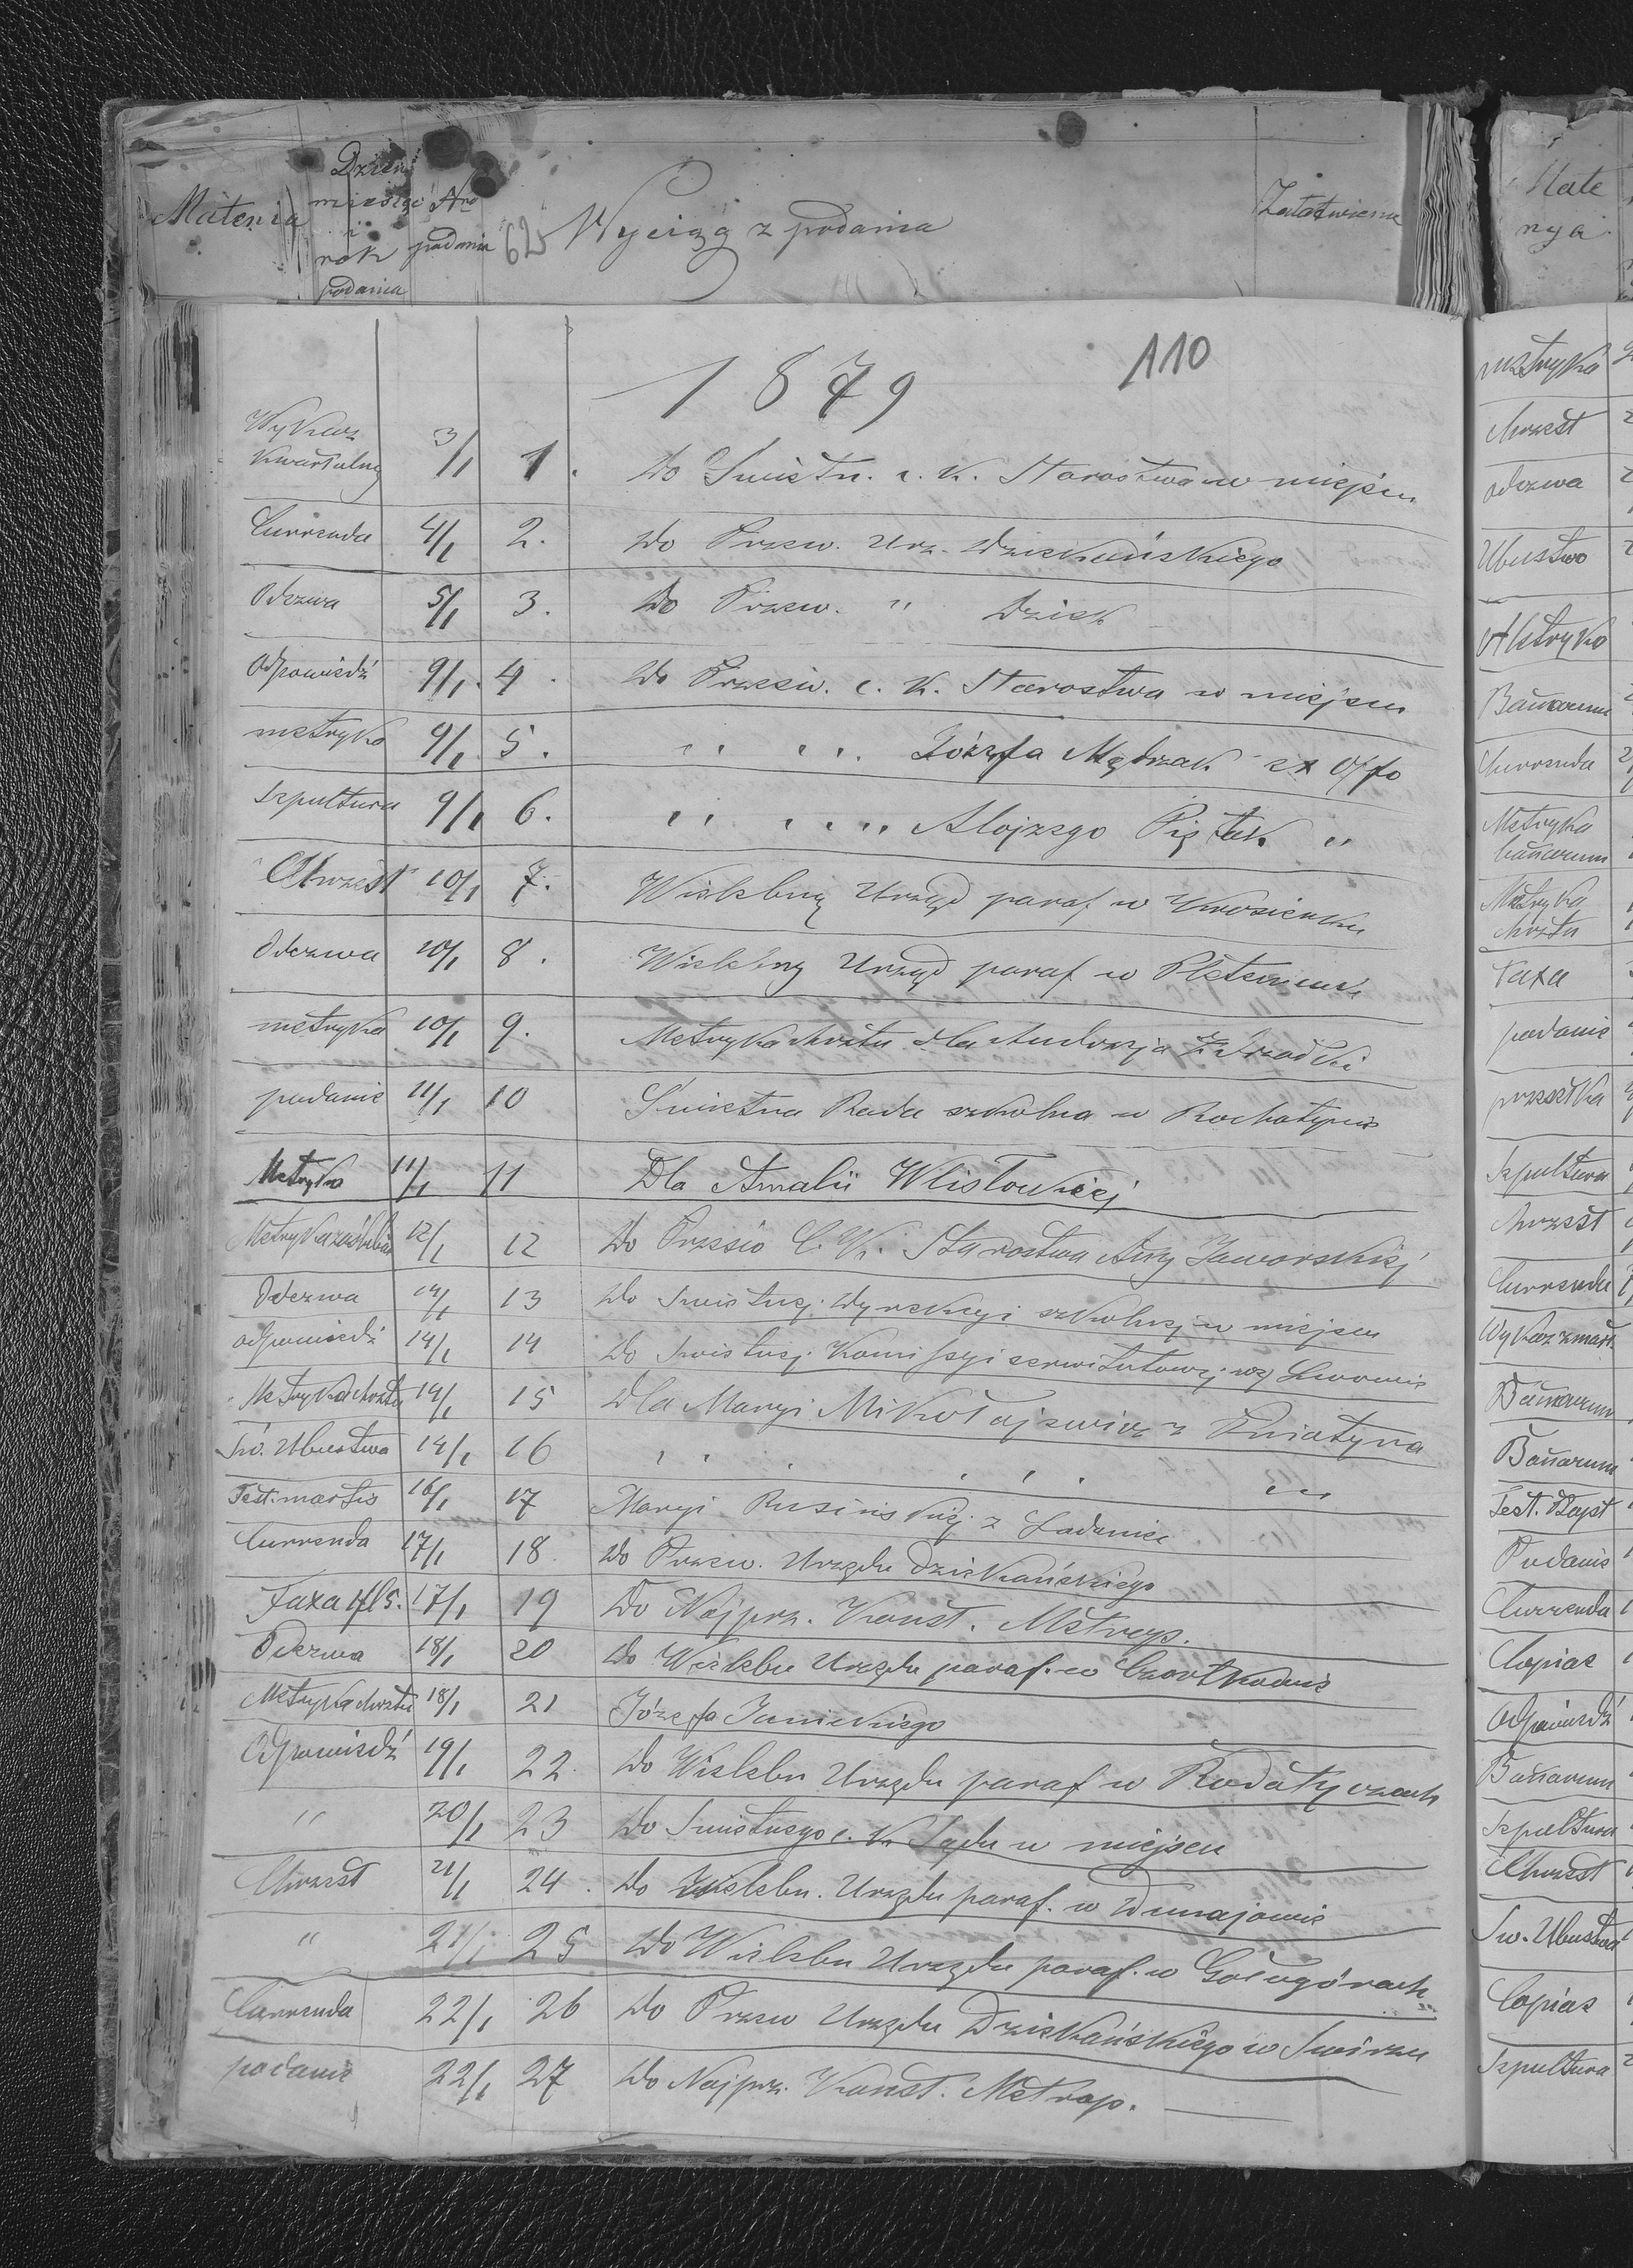 Materia
Dzień miesiąc i rok podania
Nro podania
629
Wyciąg z podania
Załatwienie
1879
110
Wykaz kwartalny 3/1 1. Do Świetn. c. k. Starostwa w miejscu
Currenda 4/1 2. Do Przew. Urz. Dziekańskiego
Odezwa 5/1 3. Do Przew. " Dziek
Odpowiedź 9/1. 4. Do Przesw. c. k. Starostwa w miejscu
metryka 9/1 5. " " Józefa Mędrzak ex offo
Sepultura 9/1 6. " " " Alojzego Piętak "
Chrzest 10/1 7. Wielebny Urząd paraf w Krosienku
Odezwa 10/1 8. Wielebny Urząd paraf w
metryka 10/1 9. Metryka chrztu dla Andrzeja
podanie 11/1 10 Świetna Rada szkolna w Rochatynie
Metryka 11/1 11 Dla Amalii Wlisłockiej
Metryka zaślubin 12/1 12 Do Prześw C. K. Starostwa Anny Jaworskiej
Odezwa 14/1 13 Do Świetnej Dyrekcyi szkolnej w miejscu
odpowiedź 14/1 14 Do Świetnej Komissyi serwitutowej we Lwowie
Metryka chrztu 14/1 15 Dla Maryi Mikołajewicz z Śniatyna
Św. Ubustwa 14/1 16 " " " "
Test. mortis 16/1 17 Maryi Rusińskiej z Ladaniec
Currenda 17/1 18 Do Przew. Urzędu Dziekańskiego
Taxa 17/1 19 Do Najprz. Konst. Metrop.
Odezwa 18/1 20 Do Wielebn Urzędu paraf. w Czortkowie
Metryka chrztu 18/1 21 Józefa Janickiego
Odpowiedź 19/1 22. Do Wielebn Urzędu paraf w Rodatyczach
" 20/1 23 Do Świetnego c. k. Sądu w miejscu
Chrzest 21/1 24. Do Wielebn. Urzędu paraf. w Dunajowie
" 21/1 25 Do Wielebn Urzędu paraf. w Gołogórach
Currenda 22/1 26 Do Przew Urzędu Dziekańskiego w Świrzu
podanie 22/1 27 Do Najprz. Konst. Metrop.
Mate
rya
metryka
chrzest
odezwa
Ubustwo
Metryka
Bannorum
Currenda
Metryka
bannorum
Metryka
chrztu
Taxa
podanie
przesełka
Sepultura
chrzest
Currenda
Wykaz zmarł.
Bannorum
Bannorum
Test. Bapt
Podanie
Currenda
Copiae
Odpowiedź
Bannorum
Sepultura
Chrzest
Św. Ubustwa
Copiae
Sepultura